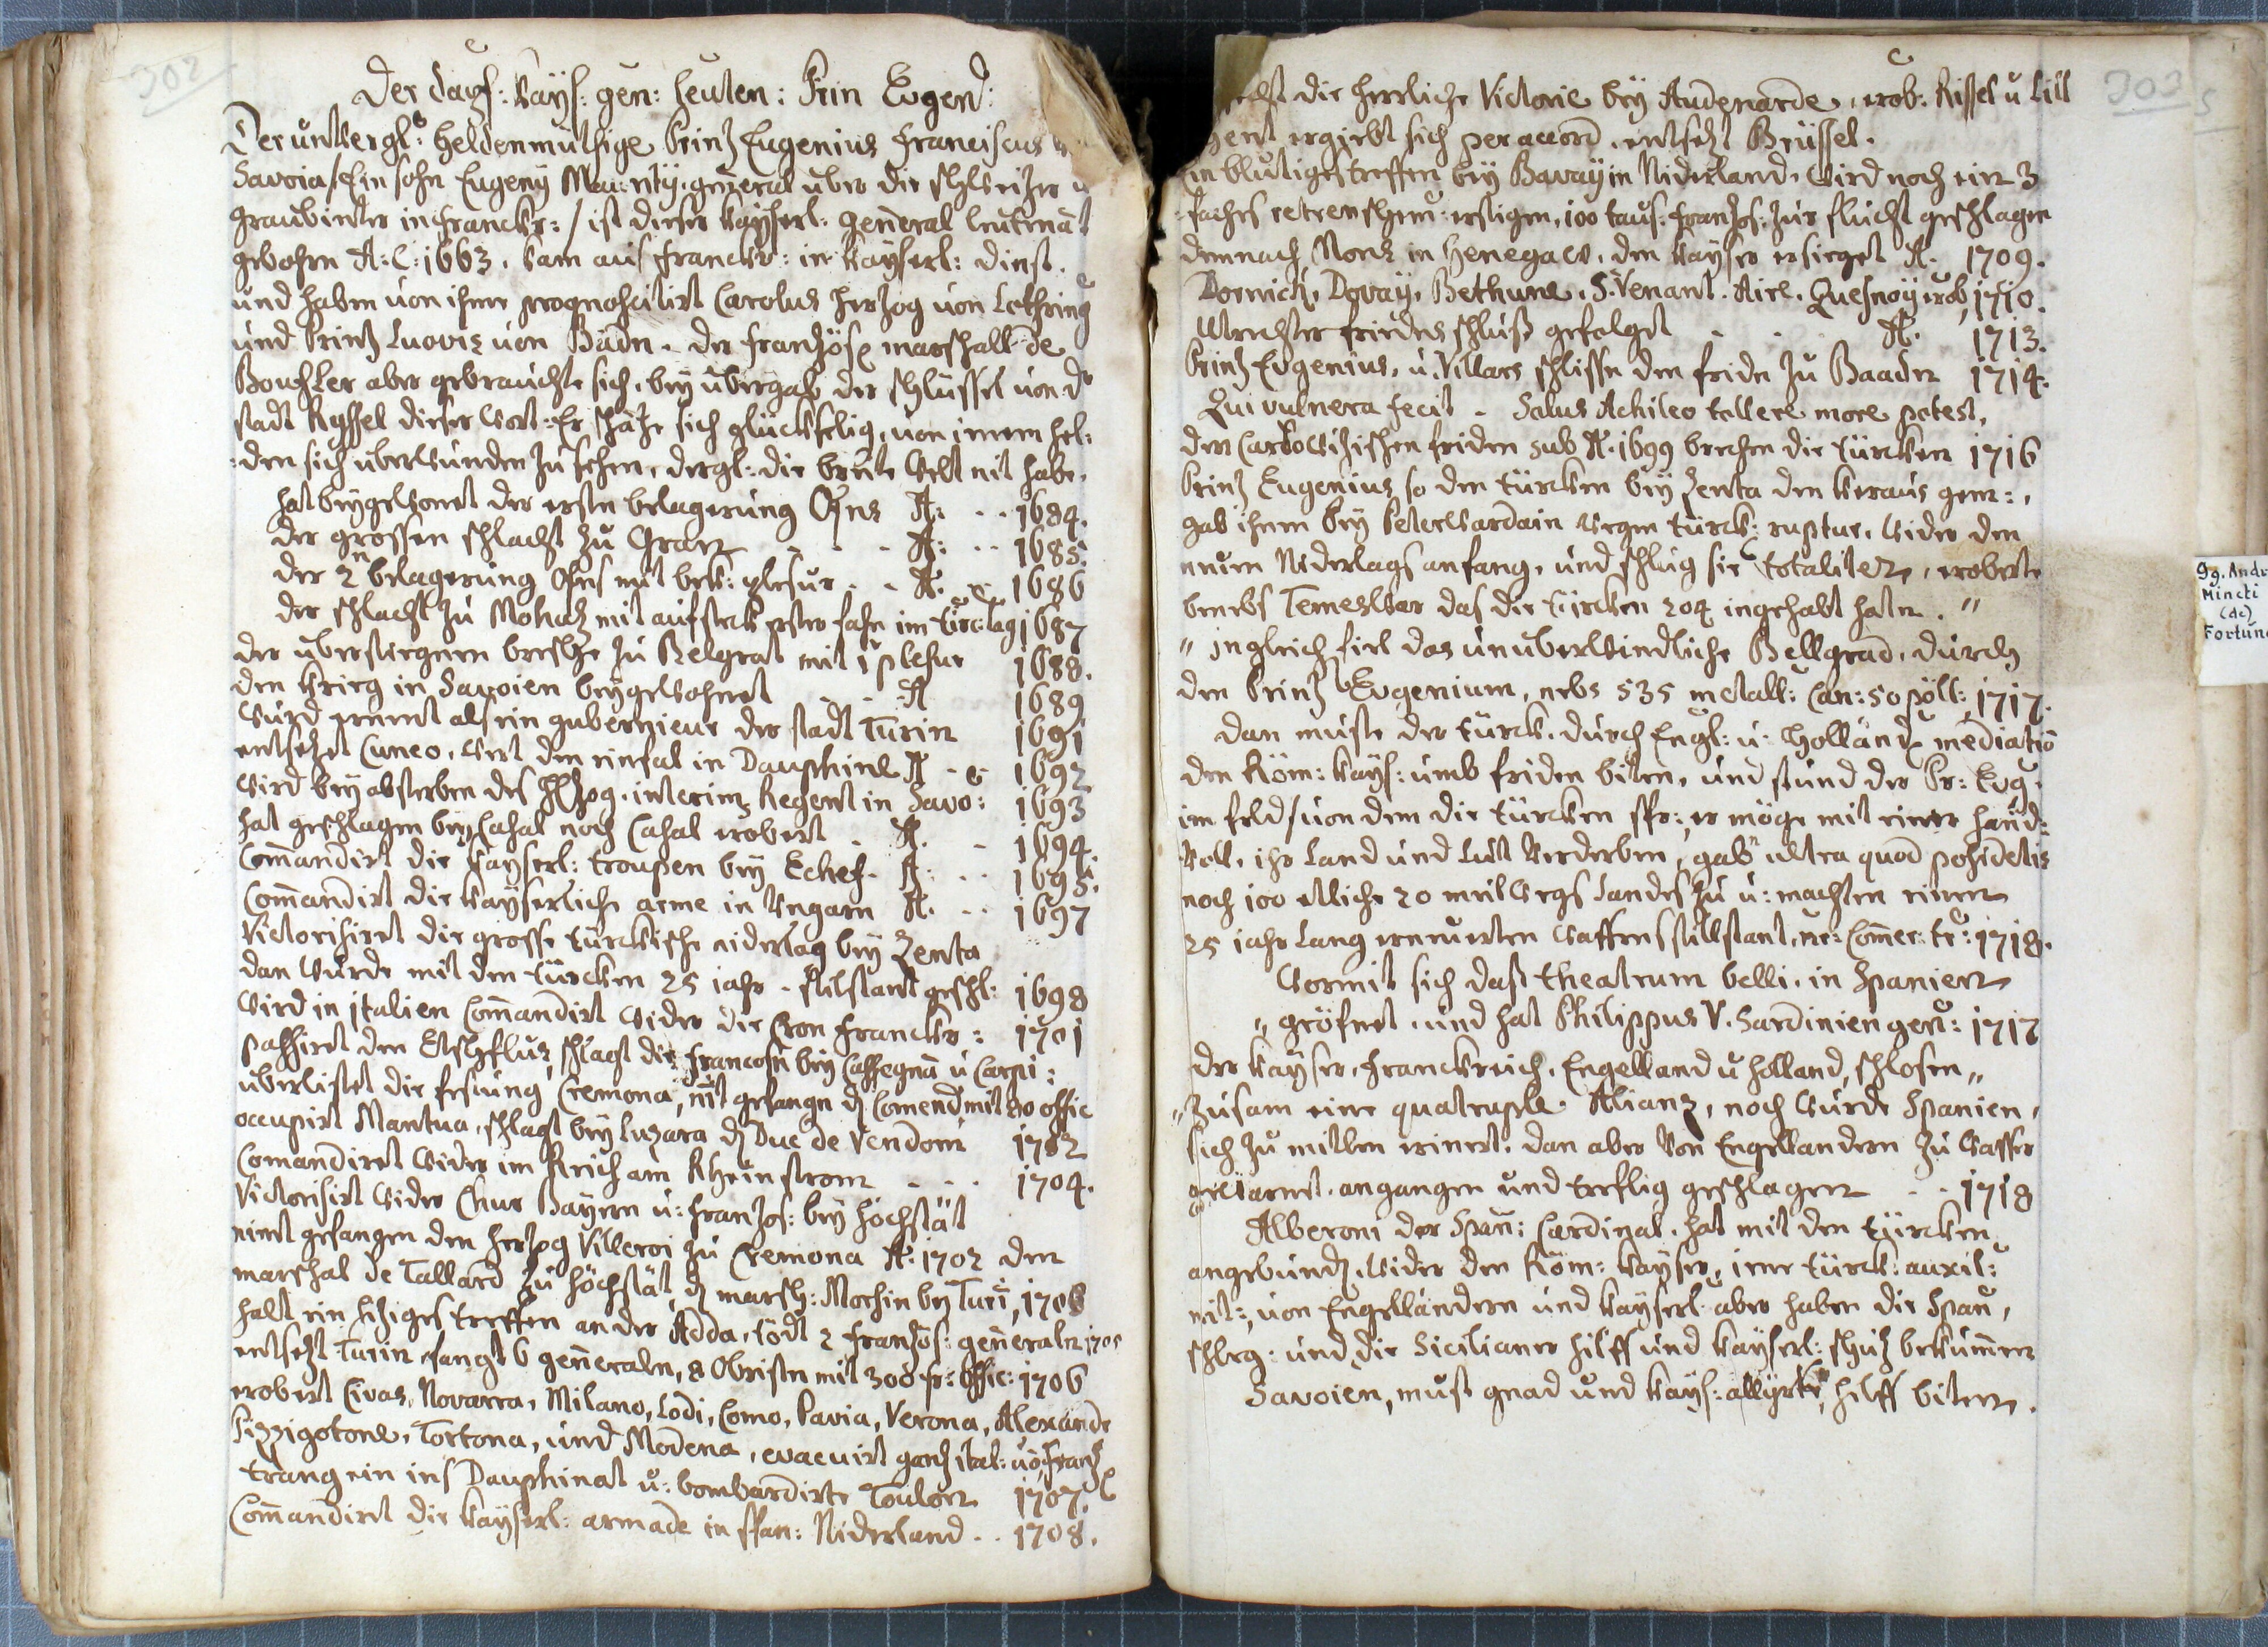 302
Der dayf: Kayß: gen: leuten: Prin Eugen:
Der unvergl: heldenmüthige Printz Eugenius Franciscus
Savoia / Ein sohn Eugeny Maurity, general über die schweitzer u
graubinter in franckr: / ist dieser kayserl: general leutenāt
gebohrn A: C: 1663. kam aus franckr: in kayserl: dinst.
und haben von ihme prognosticirt Carolus hertzog von Lothring
und Printz Luovis von Baadn. der frantzösß marschall de
Bouffler aber gebrauchte sich, bey übergab der schlüssel von dr
stadt Ryssel dieser wort: Er schätze sich glückselig, von einem hel:
:den sich überwunden zu sehen, dergl: die breite welt nit habe.
hat beygewont der ersten belagerung Ofens A: .. 1684.
der grossen schlacht zu Gran - - - A: .. 1685.
der 2n belagerung Ofens mit bek: plesur . - A. .. 1686
der schlacht zu Mohatz mit aufsteck erster fahn im türc: lag 1687
der überstiegnen bresche zu Belgrat mit 1 plesur 1688.
den krieg in Savoien beygewohnet - - A 1689
wurd ernent als ein gubernieur der stadt Turin 1691
entsetzet Cuneo, der einfal in Dauphine A - 1692
wird bey absterben des H: hzog. interims Regent in Savo: 1693
hat geschlagen bey Casal noch Casal erobert . A. - 1694.
Com̄andirt die Kayserl: troupen bey A: .. 1695.
Com̄andirt die kayserliche arme in Ungarn A. .. 1697
Victorisiret die grosse türckische niderlag bey Zenta
dan wurde mit den türcken 25 jahr - stilstant geschl: 1698
wird in italien Com̄andirt wider die Cron franckr: 1701
passiret den Etschflus, schlagt die francosn bey u Carpi:
überlistet die festung Cremona, nīt gefangn d Comend mit 80 offic
occupirt Mantua, schlagt bey Luzara d Duc de Vendom 1702
Comandiret wider im Reich am Rheinstrom - - . 1704.
Victorisirt wider Chur Bayern u: frantzos: bey höchstät
nimt gefangen den hertzog Villeroi zu Cremona A: 1702 den
marschal de Tallard zu höchstät, d marsch: Marsin bey Turī, 1706
halt ein hitziges treffen an der Adda, tödt 2 frantzös: generaln 1705
entsetzt Turin, fangt 6 generaln, 8 Obristn mit 300 fr: Offic: 1706
erobert Civas, Novarra, Milano, Lodi, Como, Pavia, Verona, Alexandr
Pizzigotone, Tortona, und Modena, evacuirt gantz ital: vō frantz
trang ein ins Dauphinat u: bombardirte Toulon 1707.
Com̄andiret die kayserl: armade in span: Niderland .. 1708.
303
die herrliche Victorie bey Audenarde, erob: Rissel u Lill
gent ergiebt sich per accord, entsetzt Brüssel.
Ein blutiges treffen bey Bavay in Niderland, wird noch ein 3
:faches retrenschem: erstigen, 100 taus: frantzos: zur flucht geschlagen
demnach Mons in Henegaw, den kayser ersieget A. 1709.
Dornich, Dovay, Bethune, S: Venant. Aire. Quesnoy erob, 1710.
Utrechter fridensschluß gefolget - - A. 1713.
Printz Eugenius, u. Villars schlissn den fridn zu Baadn 1714.
Qui vulnera fecit - Salus Achileo tollere more potest.
den Carlowitzischen friden sub A. 1699 brechen die türcken 1716
Printz Eugenius, so den türcken bey Zenta den keraus gem:,
gab ihnen bey Peterwardain wegen türck: ruptur, wider den
neuen Niderlags anfang, und schlug sie totaliter, eroberte
benebs Temeswar das die türcken 204 ingehabt haten. "
" ingleich fiel das unüberwindliche Bellgrad, durch
den Printz Eugenium, nebs 535 metall: Can: 50 pöll: 1717.
Dan muste der türck, durch Engl: u: Hollānd mediatiō
den Röm: kays: umb friden biten, und stund der Pr: Eug.
im feld / von dem die türcken spr:, er möge mit einer hand:
voll, ihr land und lüt verderben, gab ultra quod possidetis
noch 100 etliche 20 meilwegs landes zu u: machten einen
25 jahr lang erneuerten waffensstillstant, Comer: tr: 1718.
Wormit sich daß theatrum belli, in Spanien
" gröfnet, und hat Philippus V. Sardinien gen: 1717
der Kayser, franckreich, Engelland u holland, schlosen "
" zusam eine quatruple Alianz, noch wurde Spanien,
sich zu mitlen erinert. dan aber von Engellandern zu wasser
gewarnet, angangen und treflig geschlagen - - 1718
Alberoni der Span: Cardinal, hat mit den türcken
angebund, wider den Röm: Kayser, türck: auxil:
nit:, von Engelländern und kayserl: aber haben die Span,
schleg: und die Sicilianer hilff und kayserl: schutz bekum̄en
Savoien, must gnad und kays: allyrte, hilff biten.
Gg. Andr
Mincti
(de)
Fortun